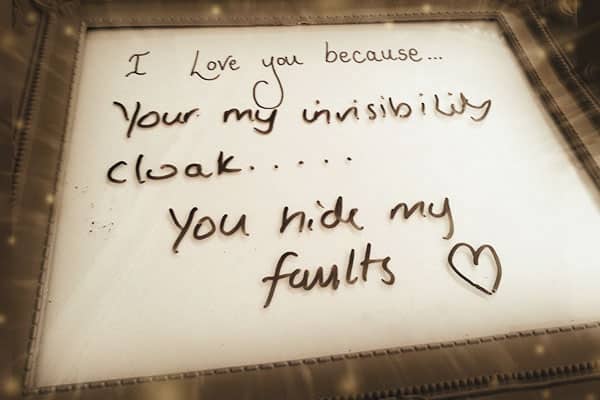 I Love you because...
Your my invisibility
cloak.....
You hide my
faults